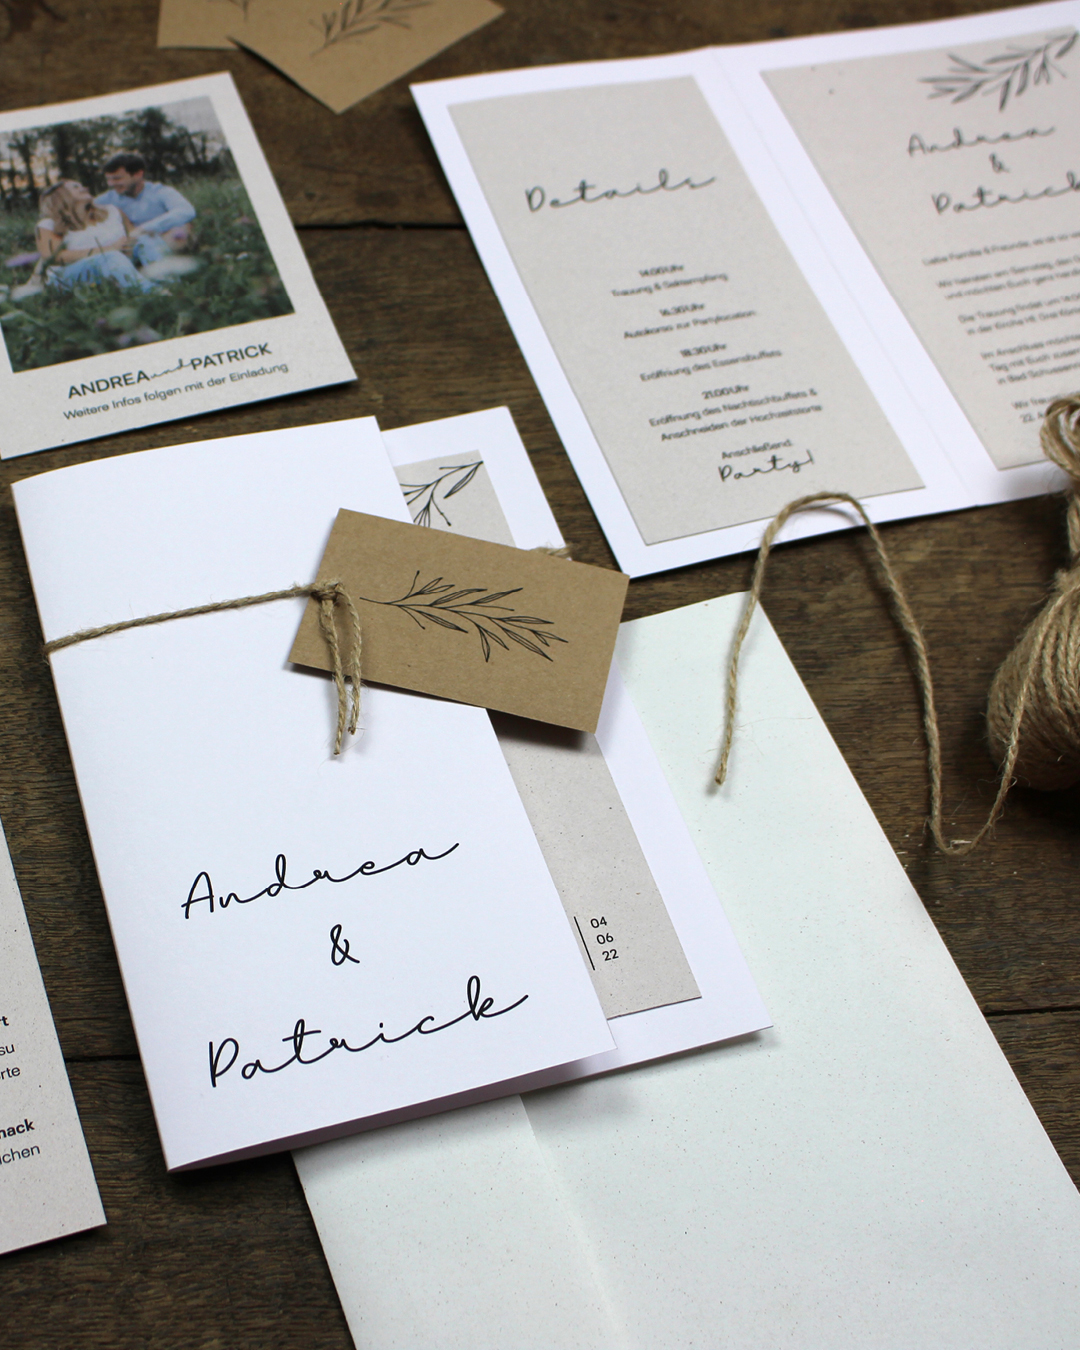 ANDREA und PATRICK
Weitere Infos folgen mit der Einladung
Details
14.00 Uhr
Trauung & Sektempfang
16.30 Uhr
Autokorso zur Partylocation
18.30 Uhr
Eröffnung des Essensbuffets
21.00 Uhr
Eröffnung des Nachtischbuffets &
Anschneiden der Hochzeitstorte
Anschließend:
Party!
Andrea
&
Patrick
Liebe Familie & Freunde, es ist so
Wir heiraten am Samstag, den
und möchten Euch ganz
Die Trauung findet um
in der Kirche
Im Anschluss
Tag mit Euch
in Bad
Wir
22.
Andrea
&
Patrick
04
06
22